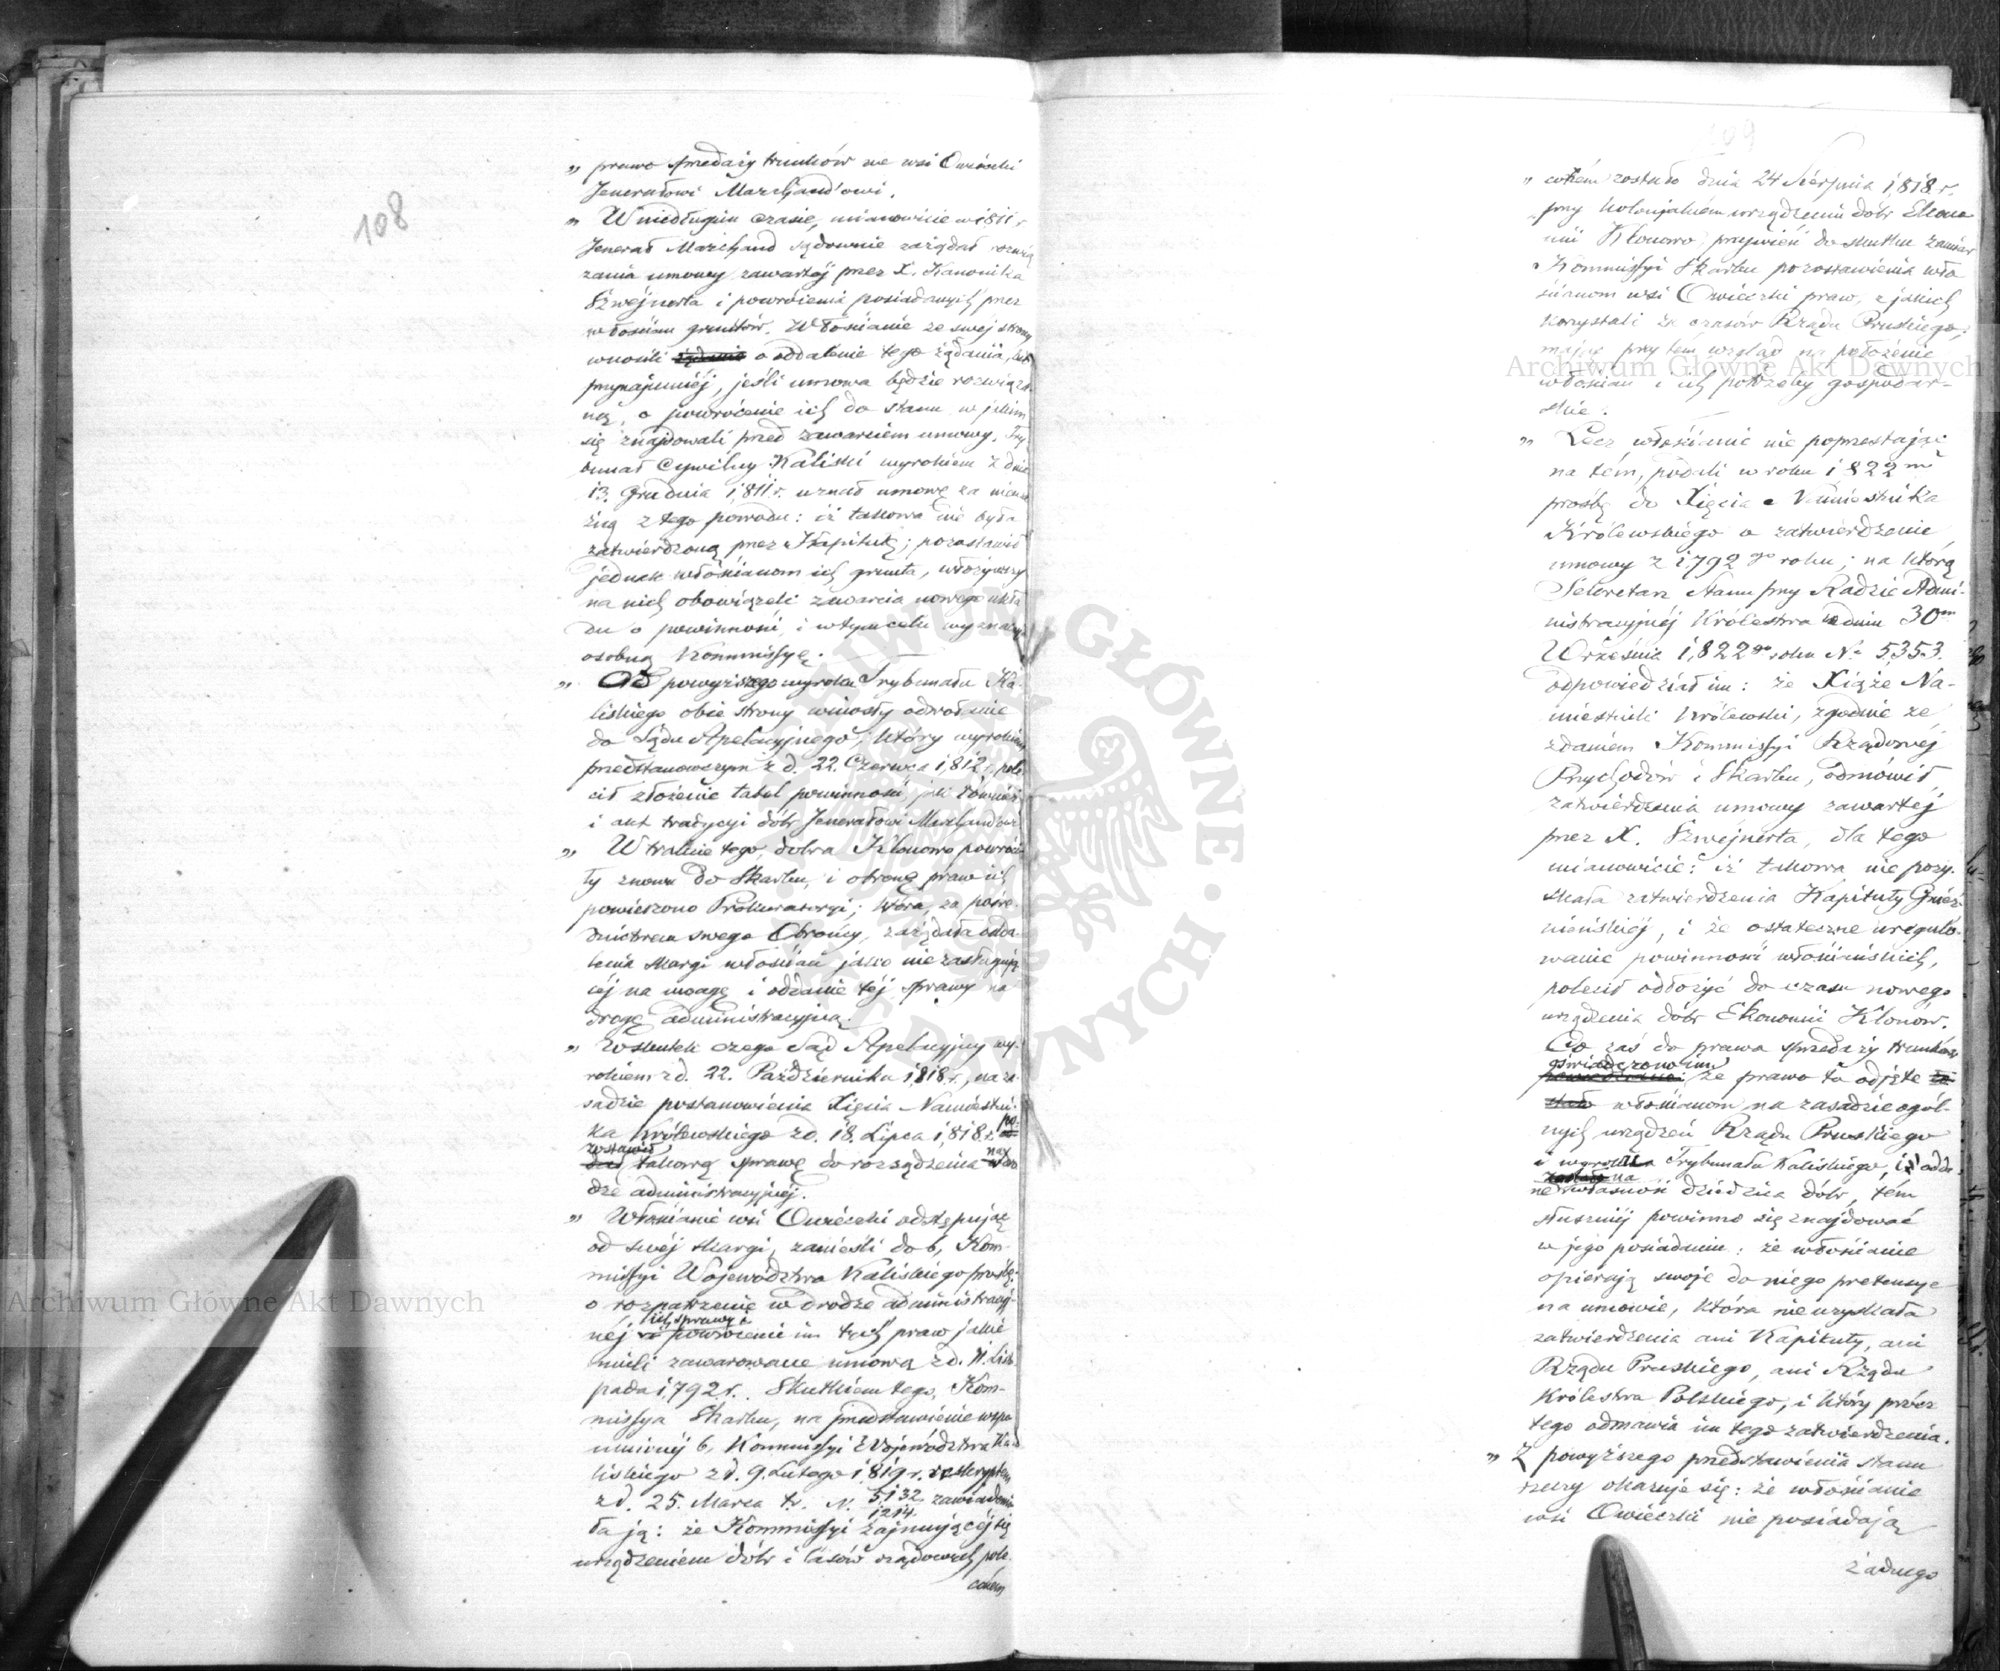 108
„ prawo sprzedaży trunków we wsi Owieczki
Jenerałowi Marchand'owi.
„ W niedługim czasie, mianowicie w 1811 r
Jenerał Marchand sądownie zażądał rozwią
zania umowy zawartéj przez X. Kanonika
Szwejnerta i powrócenia posiadanych przez
włościan gruntów. Włościanie ze swéj strony
wnosili żądanie o oddalenie tego żądania, lub
przynajmniéj, jeśli umowa będzie rozwiąza-
ną, o powrócenie ich do stanu w jakim
się znajdowali przed zawarciem umowy. Try
bunał Cywilny Kaliski wyrokiem z dnia
13. Grudnia 1811 r. uznał umowę za niewa
żną z tego powodu: iż takowa nie była
zatwierdzoną przez Kapitułę; pozostawił
jednak włościanom ich grunta, włożywszy
na nich obowiązek zawarcia nowego ukła
du o powinności i w tym celu wyznaczył
osobną Kommissyę.
„ Od powyższego wyroku Trybunału Ka-
liskiego obie strony wniosły odwołanie
do Sądu Apelacyjnego, który wyrokiem
przedstanowczym z d. 22. Czerwca 1812 r. pole
cił złożenie tabel powinności, jak również
i akt tradycyi dóbr Jenerałowi Marchand'owi
„ W trakcie tego, dobra Klonowo powróci
ły znowu do Skarbu, i obronę praw ich
powierzono Prokuratoryi; która, za pośre-
dnictwem swego Obrońcy, zażądała odda-
lenia skargi włościan jako niezasługują
céj na uwagę i oddanie téj sprawy na
drogę administracyjną.
„ Wskutek czego Sąd Apelacyjny wy-
rokiem z d. 22. Października 1818 r., na za-
sadzie postanowienia Xięcia Namiestni-
ka Królewskiego z d. 18. Lipca 1818 r. po
zostawił
takową sprawę do rozsądzenia na dro
dze administracyjnéj.
„ Włościanie wsi Owieczki odstępując
od swéj skargi, zanieśli do b. Kom-
missyi Województwa Kaliskiego prośbę
o rozpatrzenie w drodze administracyj-
ich sprawy i
néj powrócenie im tych praw jakie
mieli zawarowane umową z d. 11. Listo
pada 1792 r. Skutkiem tego, Kom-
missya Skarbu, na przedstawienie wspo
mnionéj b. Kommissyi Województwa Ka
liskiego z d. 9. Lutego 1819 r. reskryptem
z d. 25. Marca t. r. N. 5132/1214 zawiadomi
ła ją: że Kommissyi zajmującéj się
urządzeniem dóbr i lasów rządowych pole-
coném
109
„ coném zostało dnia 24 Sierpnia 1818 r.
przy kolonjalném urządzeniu dóbr Ekono
mii Klonowo, przywieść do skutku zamiar
Kommissyi Skarbu pozostawienia wło
ścianom wsi Owieczki praw, z jakich
korzystali za czasów Rządu Pruskiego;
mając przy tém wzgląd na położenie
włościan i ich potrzeby gospodar-
skie.
„ Lecz włościanie nie poprzestając
na tém, podali w roku 1822 m
prośbę do Xięcia Namiestnika
Królewskiego o zatwierdzenie
umowy z 1792 go roku; na którą
Sekretarz Stanu przy Radzie Admi-
nistracyjnéj Królestwa w dniu 30 m
Września 1822 go roku N. 5353.
odpowiedział im: że Xiąże Na-
miestnik Królewski, zgodnie ze
zdaniem Kommissyi Rządowéj
Przychodów i Skarbu, odmówił
zatwierdzenia umowy zawartéj
przez X. Szwejnerta, dla tego
mianowicie: iż takowa nie pozy-
skała zatwierdzenia Kapituły Gnieź-
nieńskiéj, i że ostateczne uregulo-
wanie powinności włościańskich,
polecił odłożyć do czasu nowego
urządzenia dóbr Ekonomii Klonów.
Co zaś do prawa sprzedaży trunków
oświadczono im
powiedziano: że prawo to odjęte zo
stało włościanom na zasadzie ogól-
nych urządzeń Rządu Pruskiego
i wyroku Trybunału Kaliskiego, i odda
na
ne własność dziedzica dóbr, tém
słuszniéj powinno się znajdować
w jego posiadaniu: że włościanie
opierają swoje do niego pretensye
na umowie, która nie uzyskała
zatwierdzenia ani Kapituły, ani
Rządu Pruskiego, ani Rządu
Królestwa Polskiego, i który prócz
tego odmawia im tego zatwierdzenia.
„ Z powyższego przedstawienia stanu
rzeczy okazuje się: że włościanie
wsi Owieczki nie posiadają
żadnego
Archiwum Główne Akt Dawnych
Archiwum Główne Akt Dawnych
ARCHIWUM GŁÓWNE AKT DAWNYCH